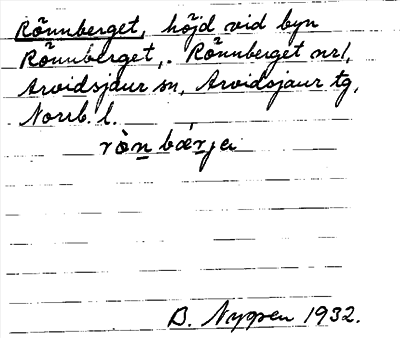 Rönnberget, höjd vid byn
Rönnberget, Rönnberget nr 1,
Arvidsjaur sn, Arvidsjaur tg,
Norrb. l.
ròn bærjei
B. Nygren 1932.